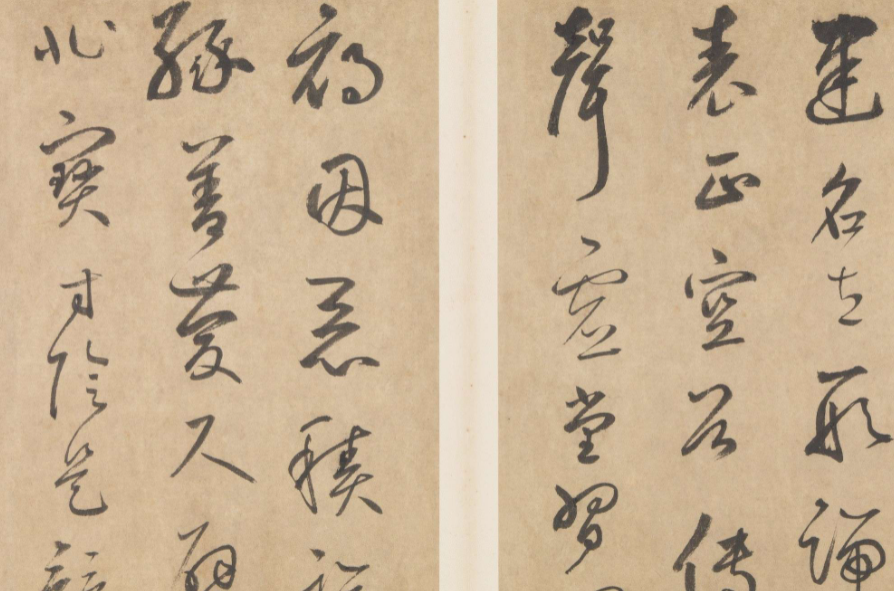 建名立形端
表正空谷傳
聲虛堂習
禍因惡積
緣善慶尺璧
非寶寸陰是